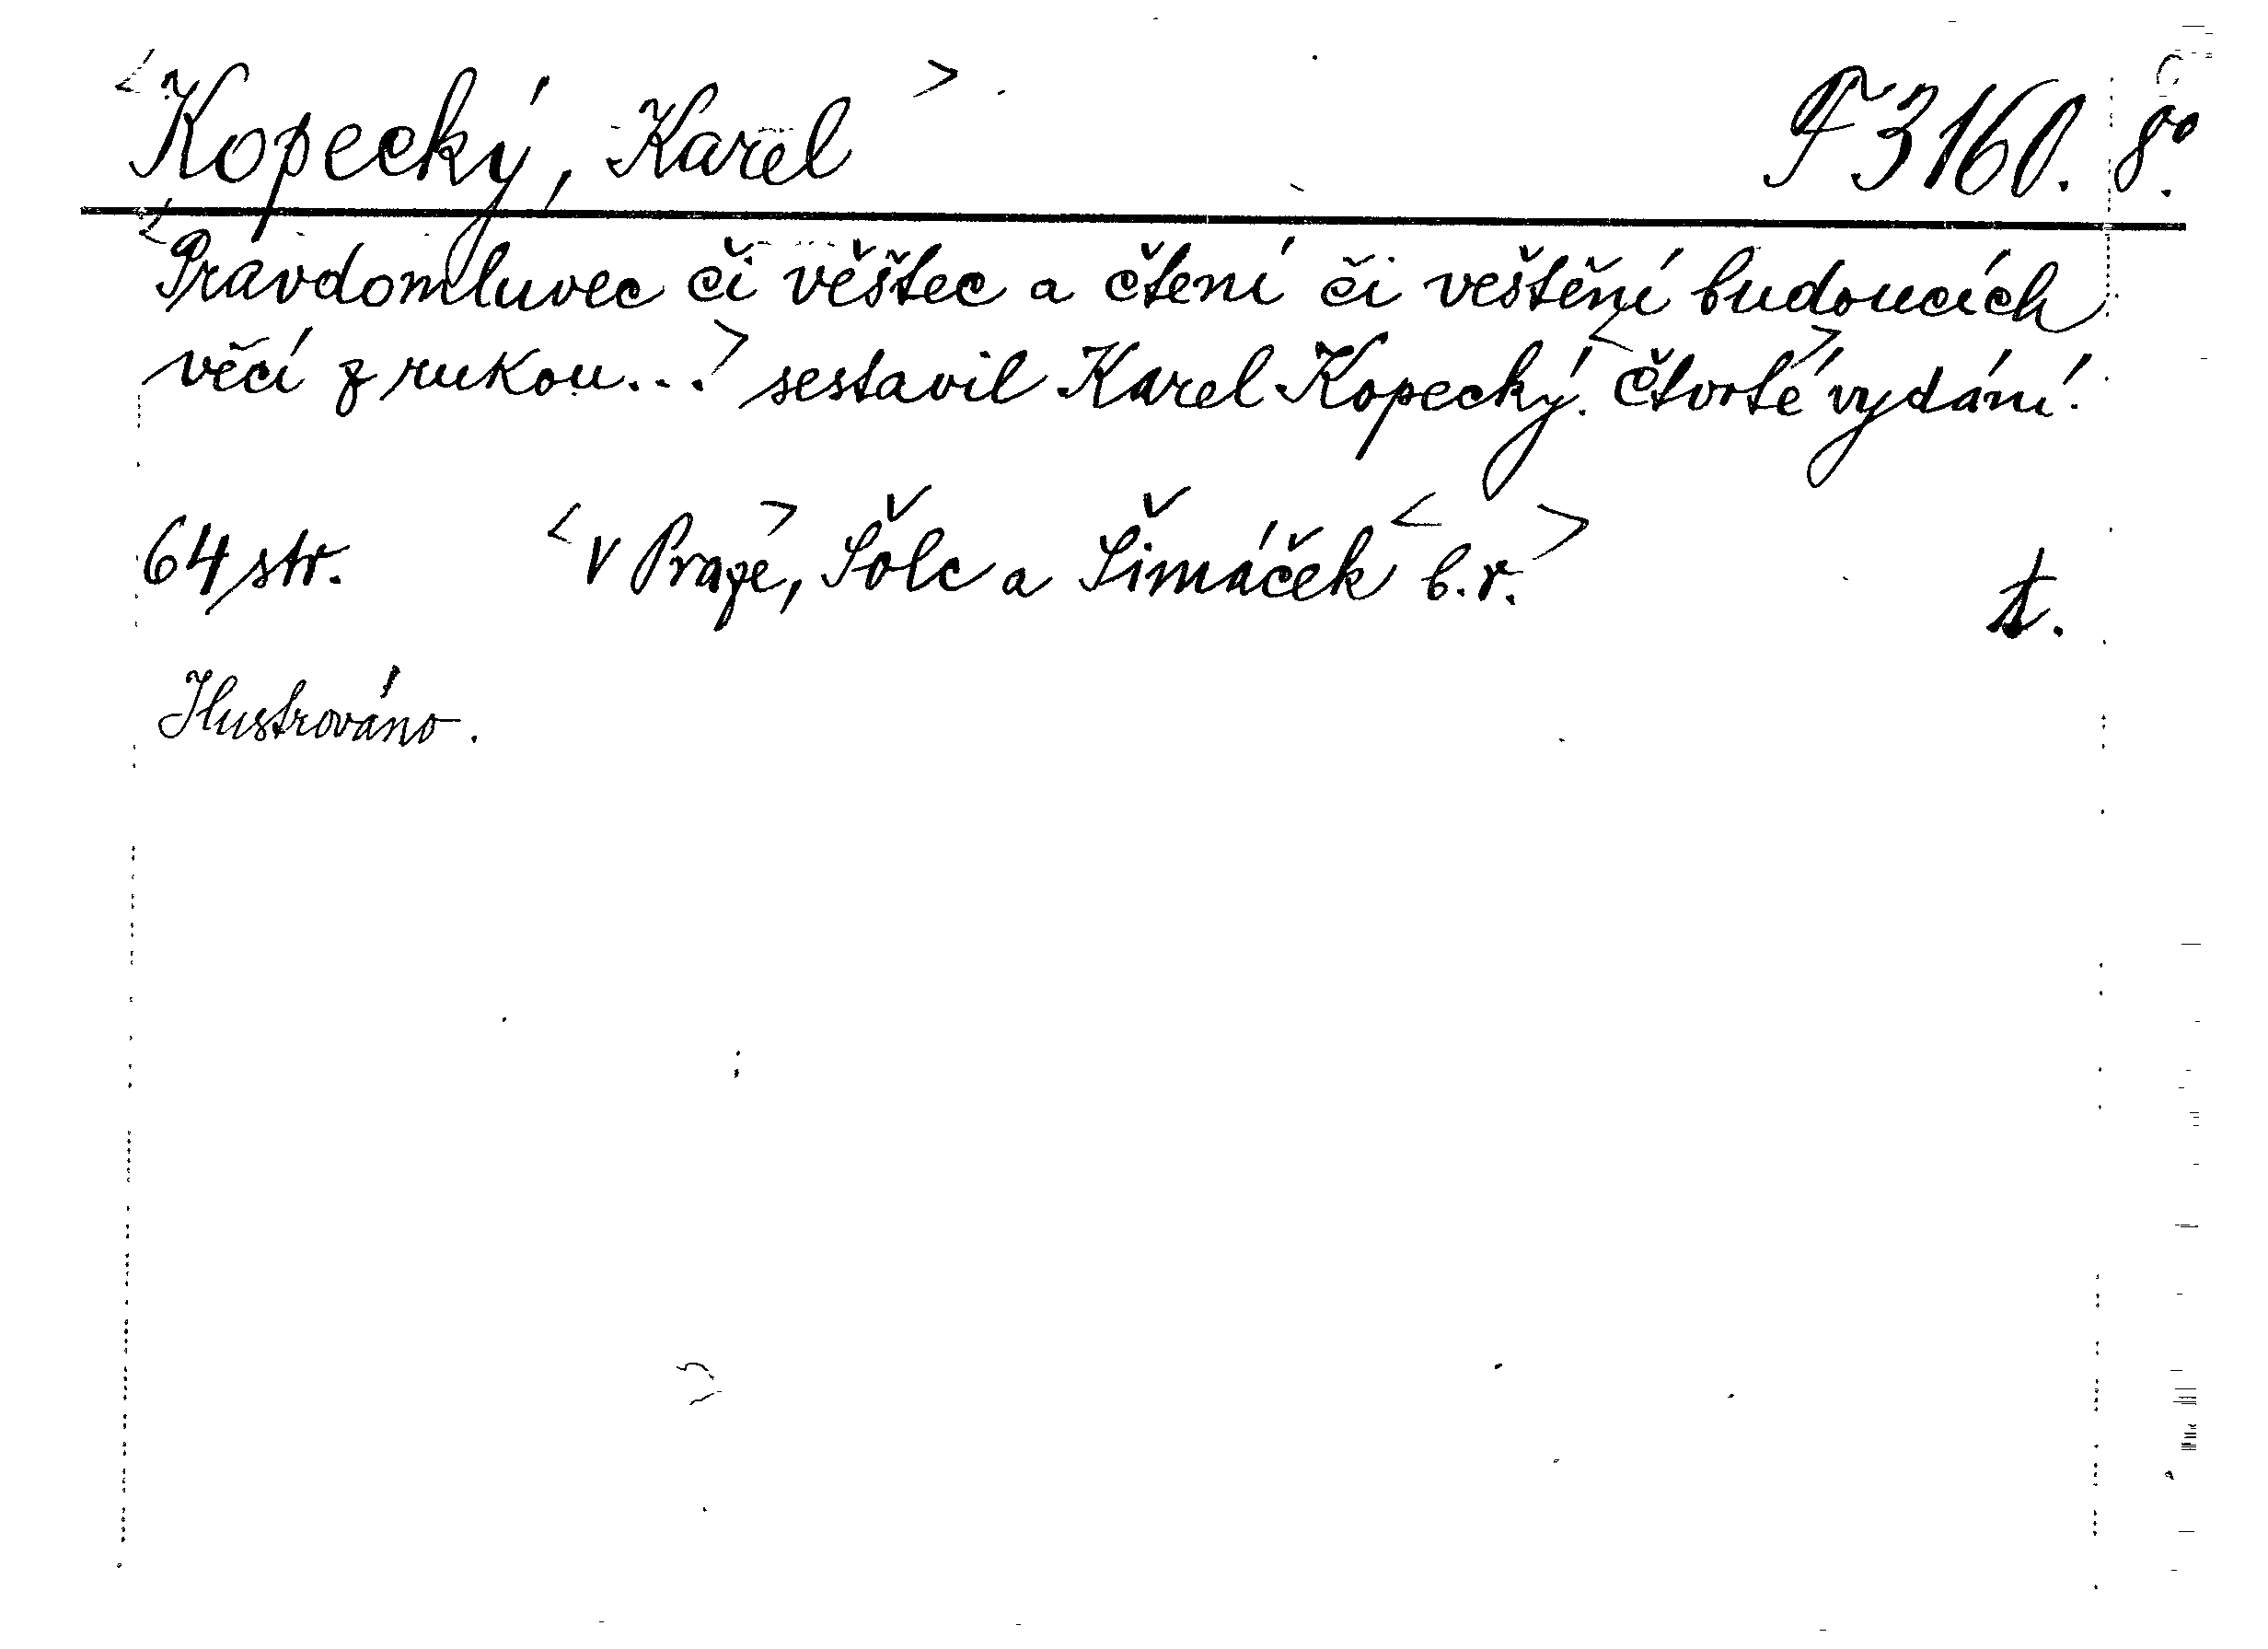 <Kopecký, Karel> F 3160. 8°.
<Pravdomluvec či věštec a čtení či veštění budoucích
věcí z rukou...> sestavil Karel Kopecký. <Čtvrté> vydání.
64 str. <V Praze>, Šolc a Šimáček <b.r.> t.
Ilustrováno.